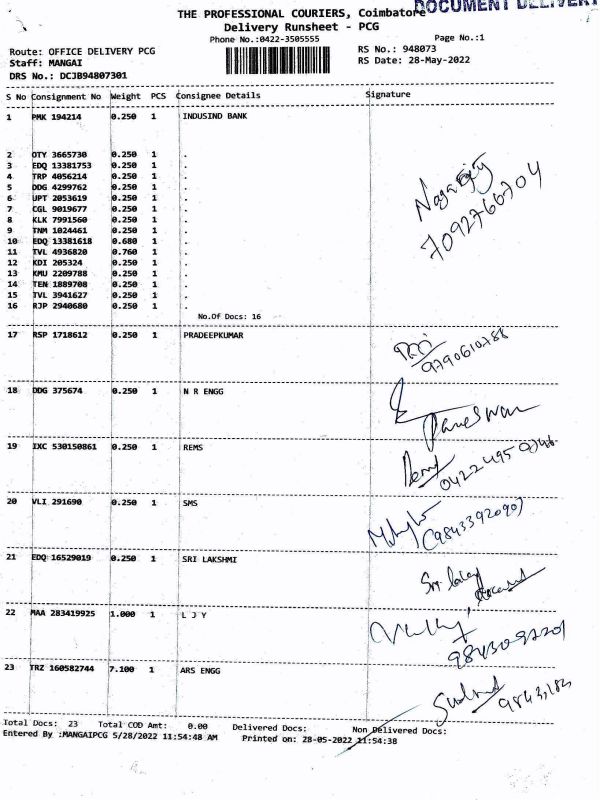 THE PROFESSIONAL COURIERS, Coimbatore
DOCUMENT DELIVERY
Delivery Runsheet - PCG
Phone No.:0422-3505555
Page No.:1
Route: OFFICE DELIVERY PCG
RS No.: 948073
Staff: MANGAI
RS Date: 28-May-2022
DRS No.: DCJB94807301
S No Consignment No Weight PCS Consignee Details Signature
1 PMK 194214 0.250 1 INDUSIND BANK
2 OTY 3665730 0.250 1 .
3 EDQ 13381753 0.250 1 .
4 TRP 4056214 0.250 1 .
5 DDG 4299762 0.250 1 .
6 UPT 2053619 0.250 1 .
7 CGL 9019677 0.250 1 .
8 KLK 7991560 0.250 1 .
9 TNM 1024461 0.250 1 .
10 EDQ 13381618 0.680 1 .
11 TVL 4936820 0.760 1 .
12 KDI 205324 0.250 1 .
13 KMU 2209788 0.250 1 .
14 TEN 1889708 0.250 1 .
15 TVL 3941627 0.250 1 .
16 RJP 2940680 0.250 1 .
7092766704
No.Of Docs: 16
17 RSP 1718612 0.250 1 PRADEEPKUMAR
9790610788
18 DDG 375674 0.250 1 N R ENGG
19 IXC 530150861 0.250 1 REMS
20 VLI 291690 0.250 1 SMS
(9843392090)
21 EDQ 16529019 0.250 1 SRI LAKSHMI
22 MAA 283419925 1.000 1 L J Y
23 TRZ 160582744 7.100 1 ARS ENGG
Total Docs: 23 Total COD Amt: 0.00 Delivered Docs: Non Delivered Docs:
Entered By :MANGAIPCG 5/28/2022 11:54:48 AM Printed on: 28-05-2022 11:54:38